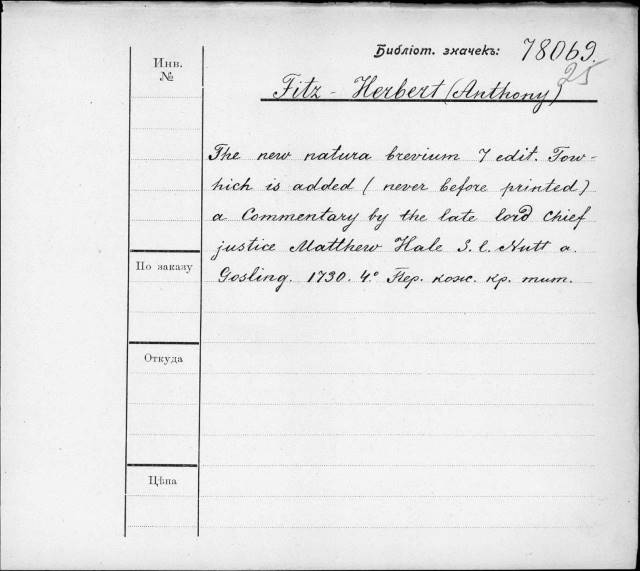 Библіот. значекъ: 78069.
25
Инв.
№
Fitz-Herbert (Anthony)
The new natura brevium 7 edit. Tow-
hich is added (never before printed)
a Commentary by the late lord chief
justice Matthew Hale S. l. Nutt a.
Gosling. 1730. 4.º Пер. кож. кр. тит.
По заказу
Откуда
Цѣна